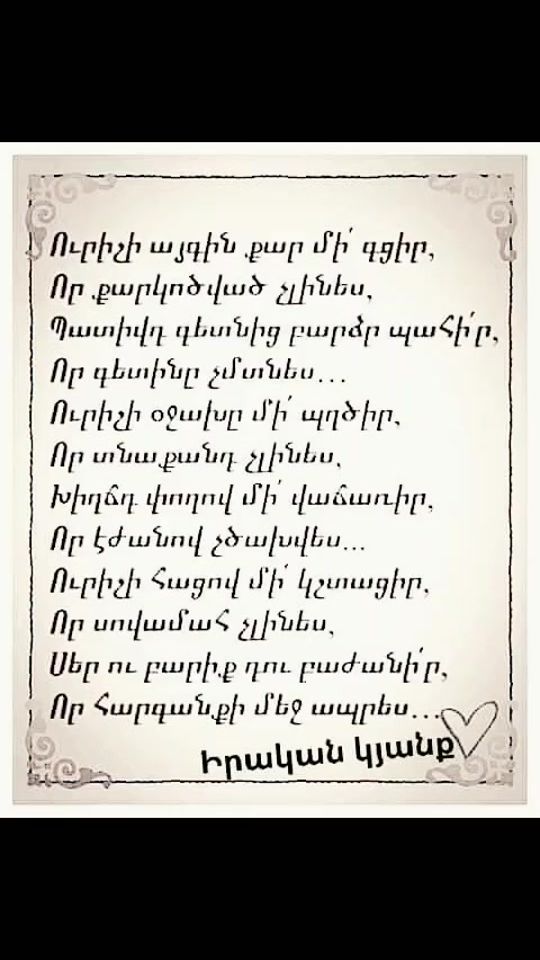 Ուրիչի այգին քար մի՛ գցիր,
Որ քարկոծված չլինես,
Պատիվդ գետնից բարձր պահի՛ր,
Որ գետինը չմտնես...
Ուրիչի օջախը մի՛ պղծիր,
Որ տնաքանդ չլինես,
Խիղճդ փողով մի՛ վաճառիր,
Որ էժանով չծախվես...
Ուրիչի հացով մի՛ կշտացիր,
Որ սովամահ չլինես,
Սեր ու բարիք դու բաժանի՛ր,
Որ հարգանքի մեջ ապրես...
Իրական կյանք